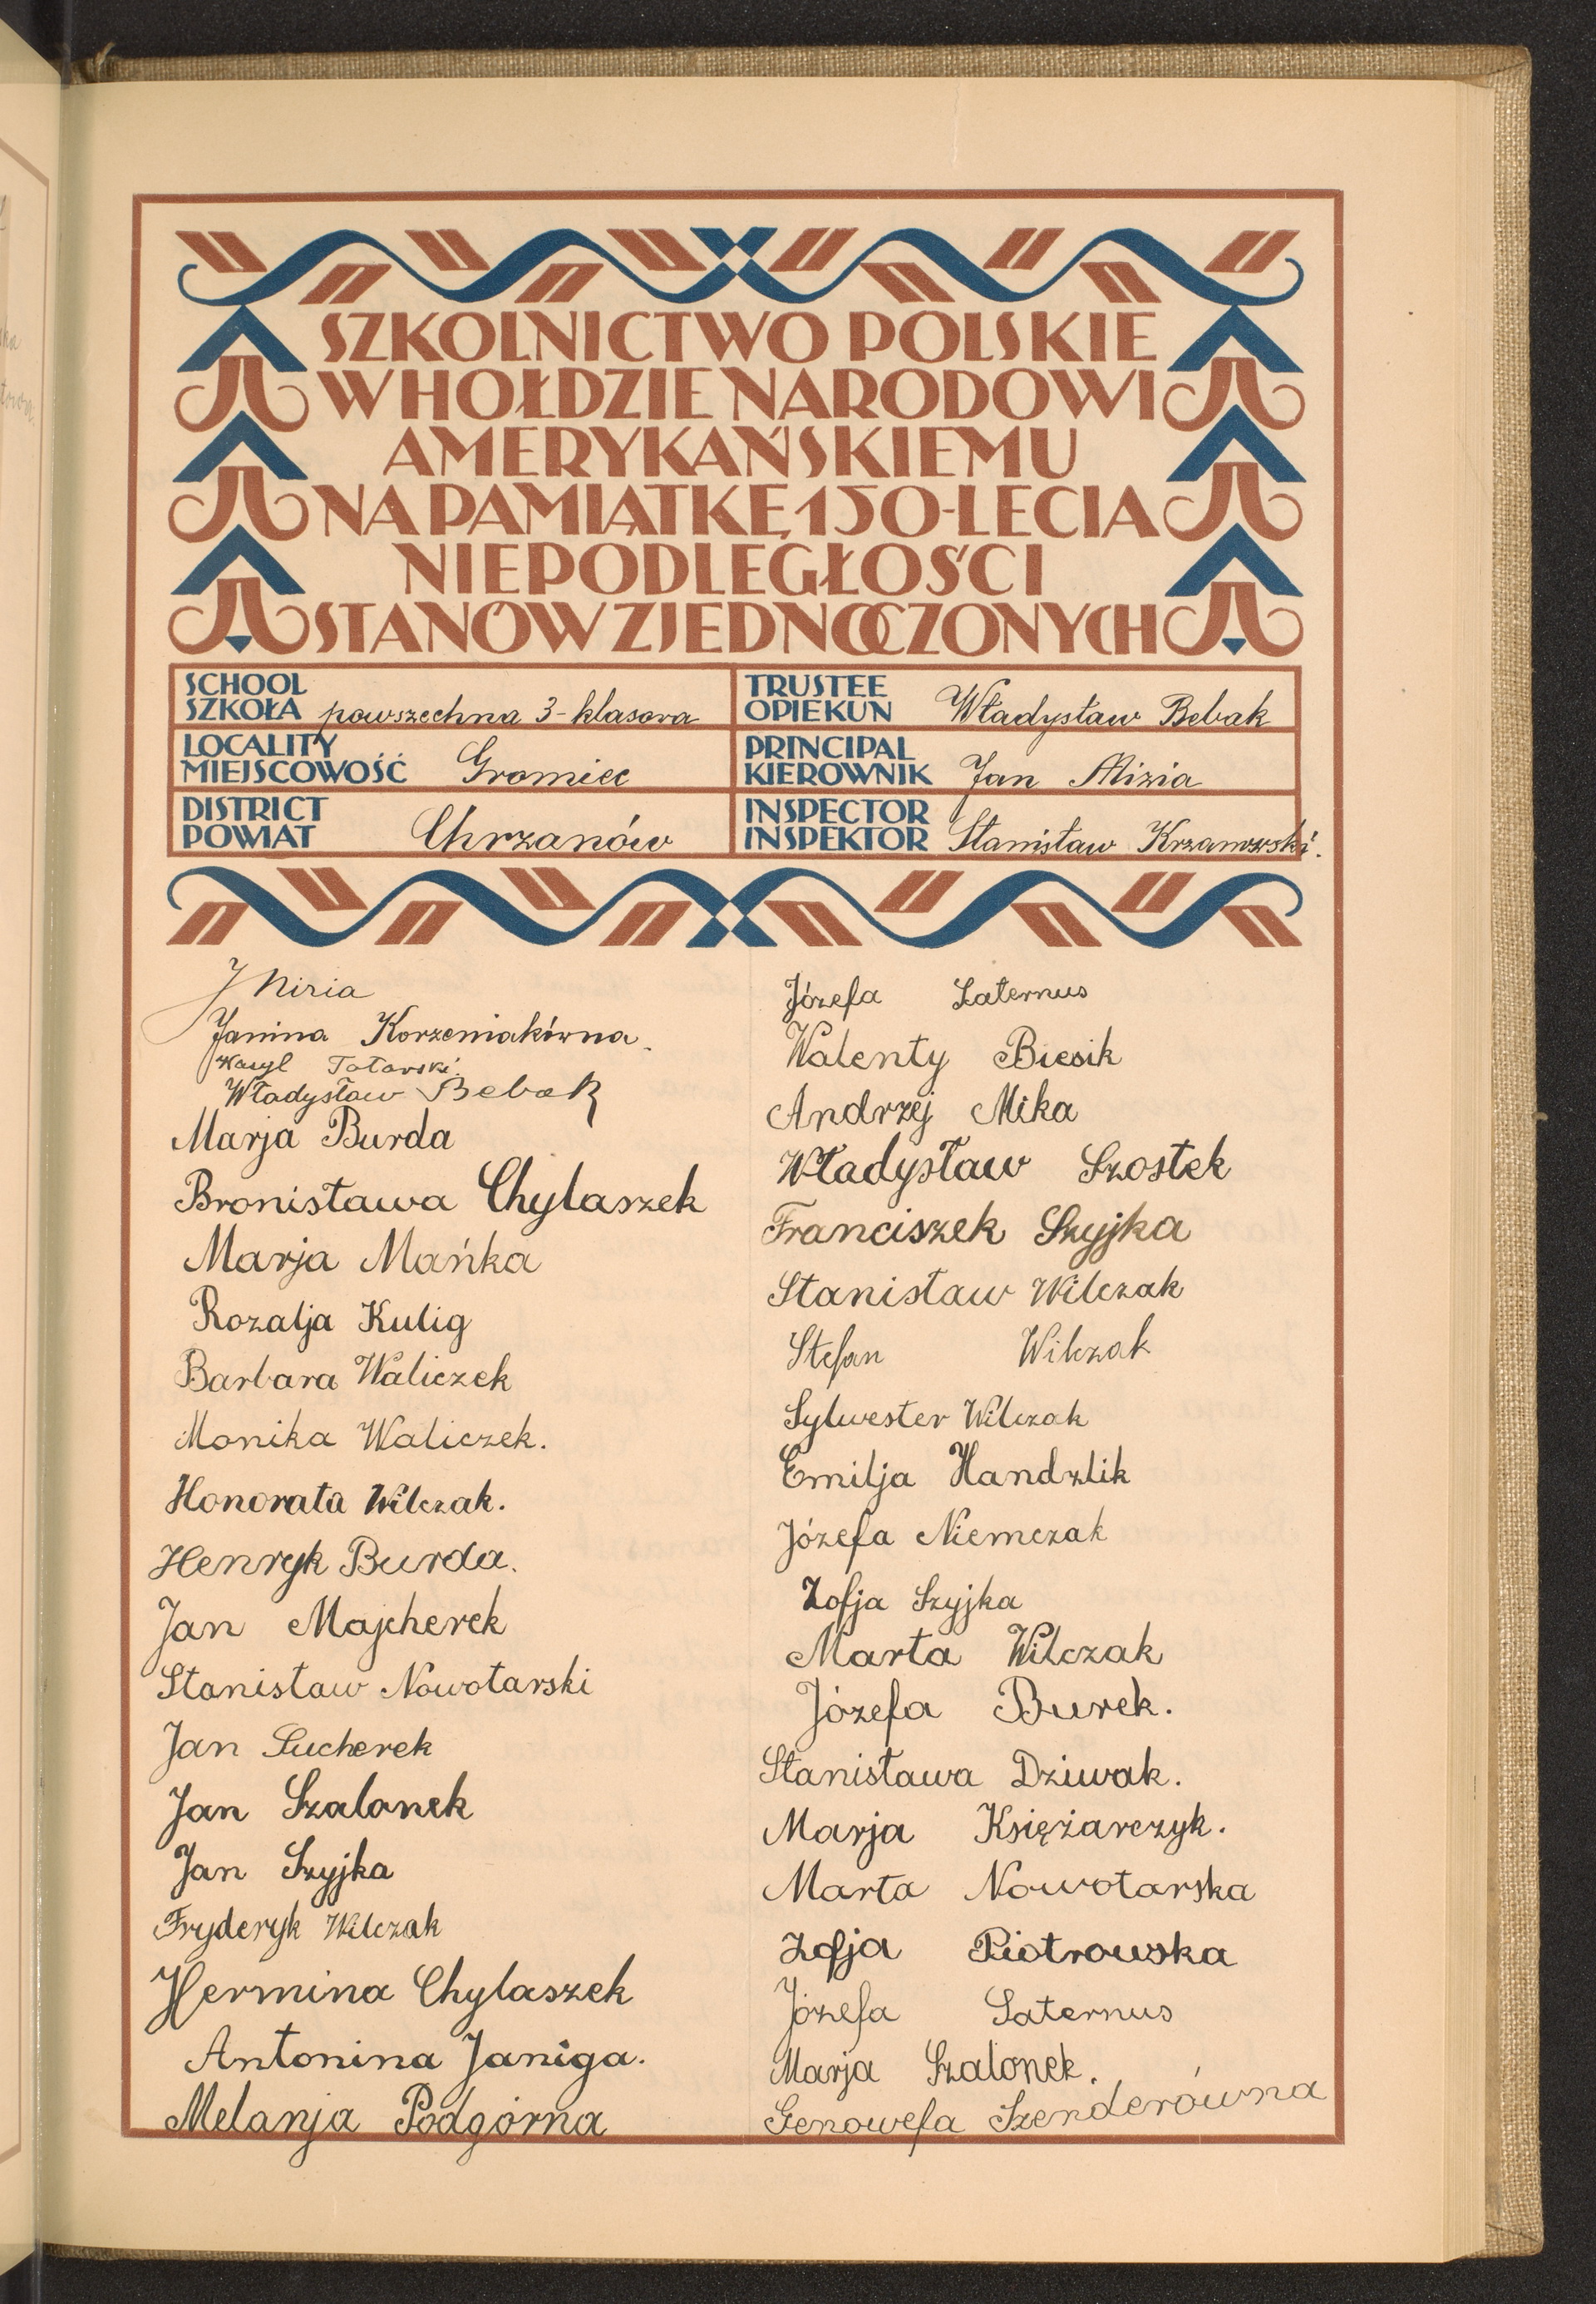 SZKOLNICTWO POLSKIE
W HOŁDZIE NARODOWI
AMERYKAŃSKIEMU
NA PAMIĄTKĘ 150-LECIA
NIEPODLEGŁOŚCI
STANÓW ZJEDNOCZONYCH
SCHOOL
SZKOŁA powszechna 3-klasowa
LOCALITY
MIEJSCOWOŚĆ Gromiec
DISTRICT
POWIAT Chrzanów
TRUSTEE
OPIEKUN Władysław Bebak
PRINCIPAL
KIEROWNIK Jan Mizia
INSPECTOR
INSPEKTOR Stanisław Krzanowski.
J Mizia
Janina Korzeniakówna.
Totarski.
Władysław Bebak
Marja Burda
Bronisława Chylaszek
Marja Mańka
Rozalja Kulig
Barbara Waliczek
Monika Waliczek.
Honorata Wilczak.
Henryk Burda.
Jan Majcherek
Stanisław Nowotarski
Jan Sucherek
Jan Szalonek
Jan Szyjka
Fryderyk Wilczak
Hermina Chylaszek
Antonina Janiga.
Melanja Podgórna
Józefa Laternus
Walenty Biesik
Andrzej Mika
Władysław Szostek
Franciszek Szyjka
Stanisław Wilczak
Stefan Wilczak
Sylwester Wilczak
Emilja Handzlik
Józefa Niemczak
Zofja Szyjka
Marta Wilczak
Józefa Burek.
Stanisława Dziwak.
Marja Księżarczyk.
Marta Nowotarska
Zofja Piotrowska
Józefa Saternus
Marja Szalonek.
Genowefa Szenderówna